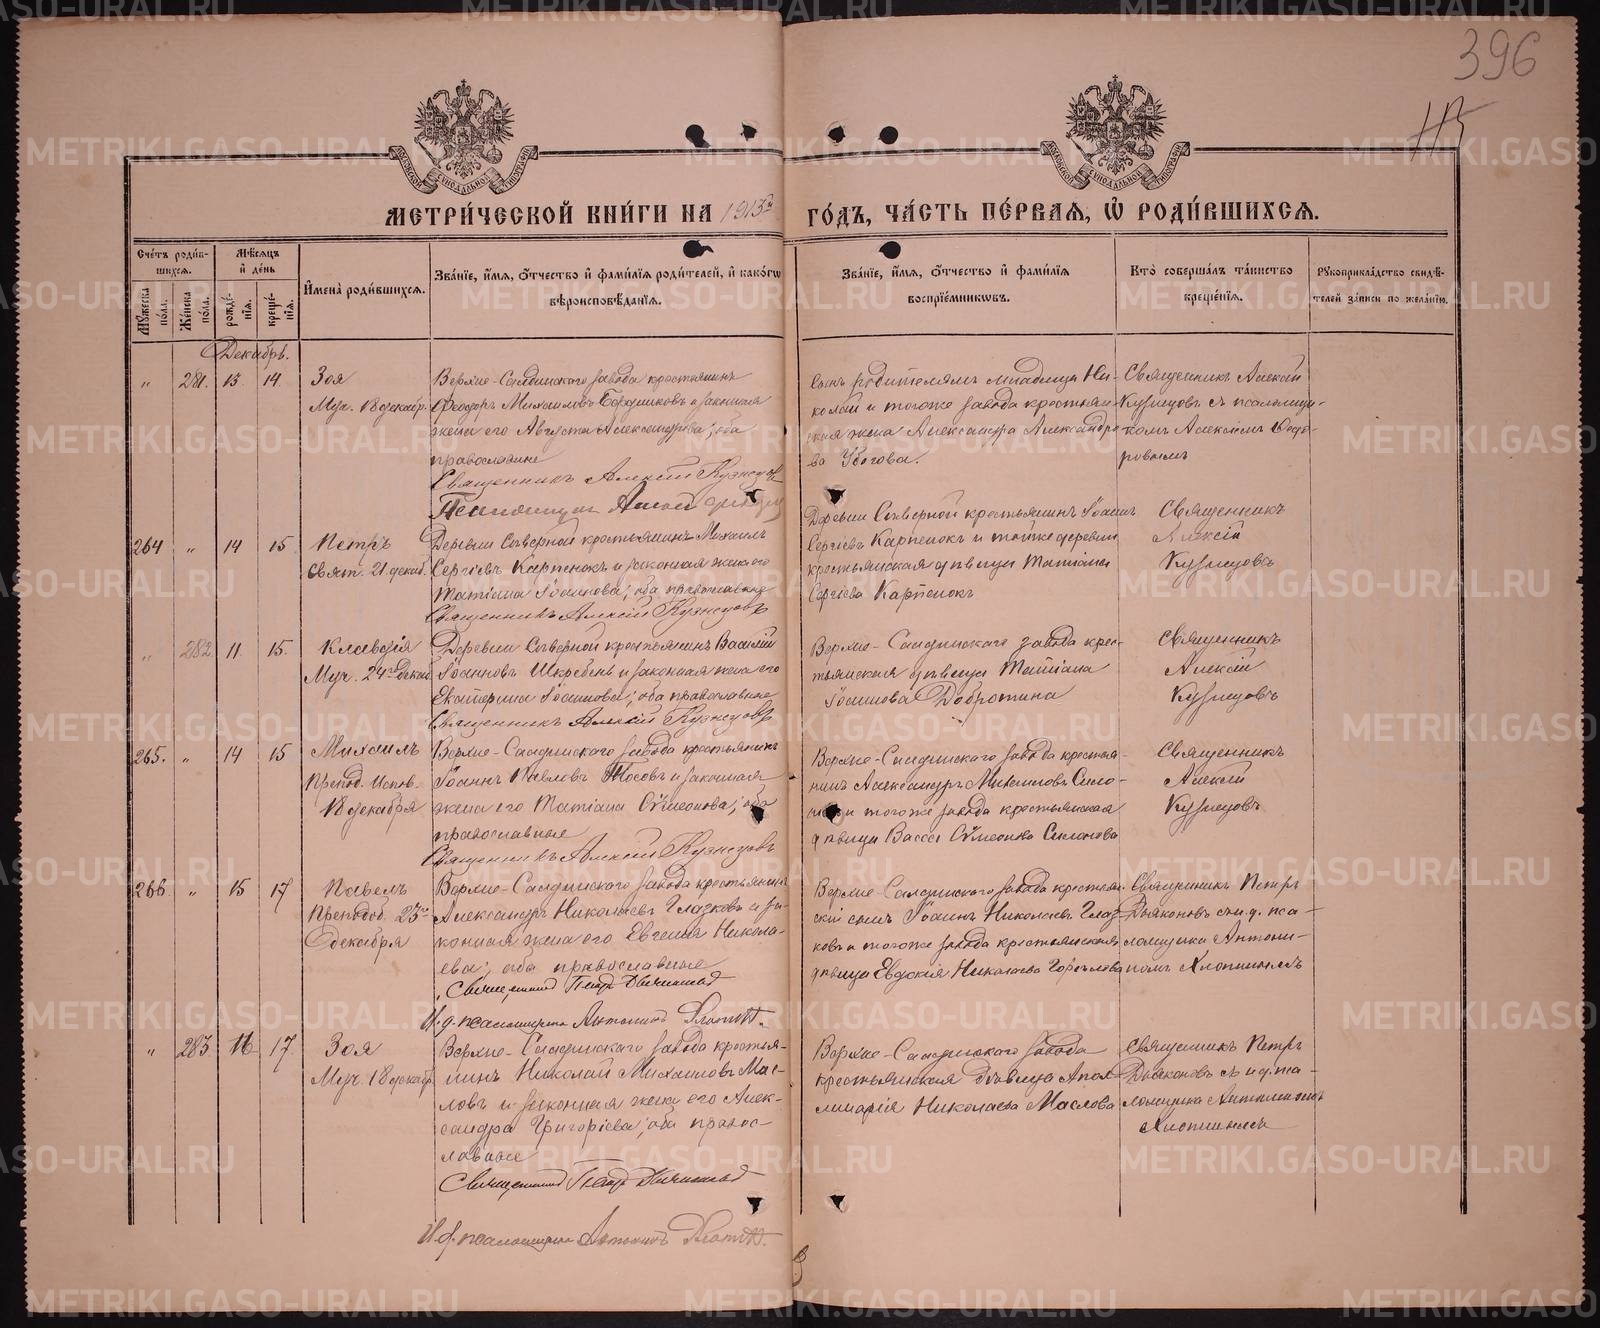 396
МЕТРИ́ЧЕСКОЙ КНИ́ГИ НА 1913й ГО́ДЪ, ЧА́СТЬ ПЕ́РВАЯ, Ѡ РОДИ́ВШИХСЯ.
Сче́тъ роди́вшихся.
Мꙋжеска по́ла.
Же́нска по́ла.
Мѣ́сяцъ и́ де́нь
рожде́нїя.
креще́нїя.
И́мена̀ роди́вшихся.
Зва́нїе, и́мя, ѻ́тчество и́ фами́лїя роди́телей, и́ како́гѡ вѣроисповѣ́данїя.
Зва́нїе, и́мя, ѻ́тчество и́ фами́лїя воспрїе́мникѡвъ.
Кто̀ соверша́лъ та́инство креще́нїя.
Рꙋкоприкла́дство свидѣ́телей за́писи по жела́нїю.
Декабрь.
„ 281. 13. 14. Зоя
Муч. 18 декабр.
Верхне-Салдинскаго завода крестьянинъ
Ѳеодоръ Михаиловъ и законная
жена его Августа Александрова; оба
православные
Священникъ Алексій Кузнецовъ
сынъ родителямъ младенца Ни-
колай и тогоже завода крестьян-
ская жена Александра Александро-
ва Убогова.
Священникъ Алексій
Кузнецовъ съ псаломщи-
комъ Алексіемъ Ѳедо-
ровымъ
264 „ 14 15. Петръ
Свят. 21 декаб.
Деревни Сѣверной крестьянинъ Михаилъ
Сергіевъ Карпенокъ и законная жена его
Татіана Іоаннова; оба православные
Священникъ Алексій Кузнецовъ
Деревни Сѣверной крестьянинъ Іоаннъ
Сергіевъ Карпенокъ и тойже деревни
крестьянская дѣвица Татіана
Сергіева Карпенокъ
Священникъ
Алексій
Кузнецовъ
„ 282 11. 15. Клавдія
Муч. 24го декаб.
Деревни Сѣверной крестьянинъ Василій
Іоанновъ Шкребень и законная жена его
Екатерина Іоаннова; оба православные
Священникъ Алексій Кузнецовъ
Верхне-Салдинскаго завода крес-
тьянская дѣвица Татіана
Іоаннова Добротина
Священникъ
Алексій
Кузнецовъ
265. „ 14 15 Михаилъ
Препод. Испов.
18 декабря
Верхне-Салдинскаго завода крестьянинъ
Іоаннъ Павловъ и законная
жена его Татіана Сѵмеонова; оба
православные
Священникъ Алексій Кузнецовъ
Верхне-Салдинскаго завода крестья-
нинъ Александръ Михаиловъ
и тогоже завода крестьянская
дѣвица Васса Сѵмеонова
Священникъ
Алексій
Кузнецовъ
266. „ 15 17 Павелъ
Преподоб. 23го
декабря
Верхне-Салдинскаго завода крестьянинъ
Александръ Николаевъ Глазковъ и за-
конная жена его Евгенія Никола-
ева; оба православные
Священникъ Петръ Дьяконовъ
И. д. псаломщика Антонинъ
Верхне-Салдинскаго завода крестьян-
скій сынъ Іоаннъ Николаевъ Глаз-
ковъ и тогоже завода крестьянская
дѣвица Евдокія Николаева
Священникъ Петръ
Дьяконовъ съ и. д. пса-
ломщика Антони-
номъ
„ 283 16 17. Зоя
Муч. 18 декабр.
Верхне-Салдинскаго завода крестья-
нинъ Николай Михаиловъ Мас-
ловъ и законная жена его Алек-
сандра Григоріева; оба правос-
лавные
Священникъ Петръ Дьяконовъ
И. д. псаломщика Антонинъ
Верхне-Салдинскаго завода
крестьянская дѣвица Апол-
линарія Николаева Маслова
Священникъ Петръ
Дьяконовъ съ и. д. пса-
ломщика Антониномъ
METRIKI.GASO-URAL.RU